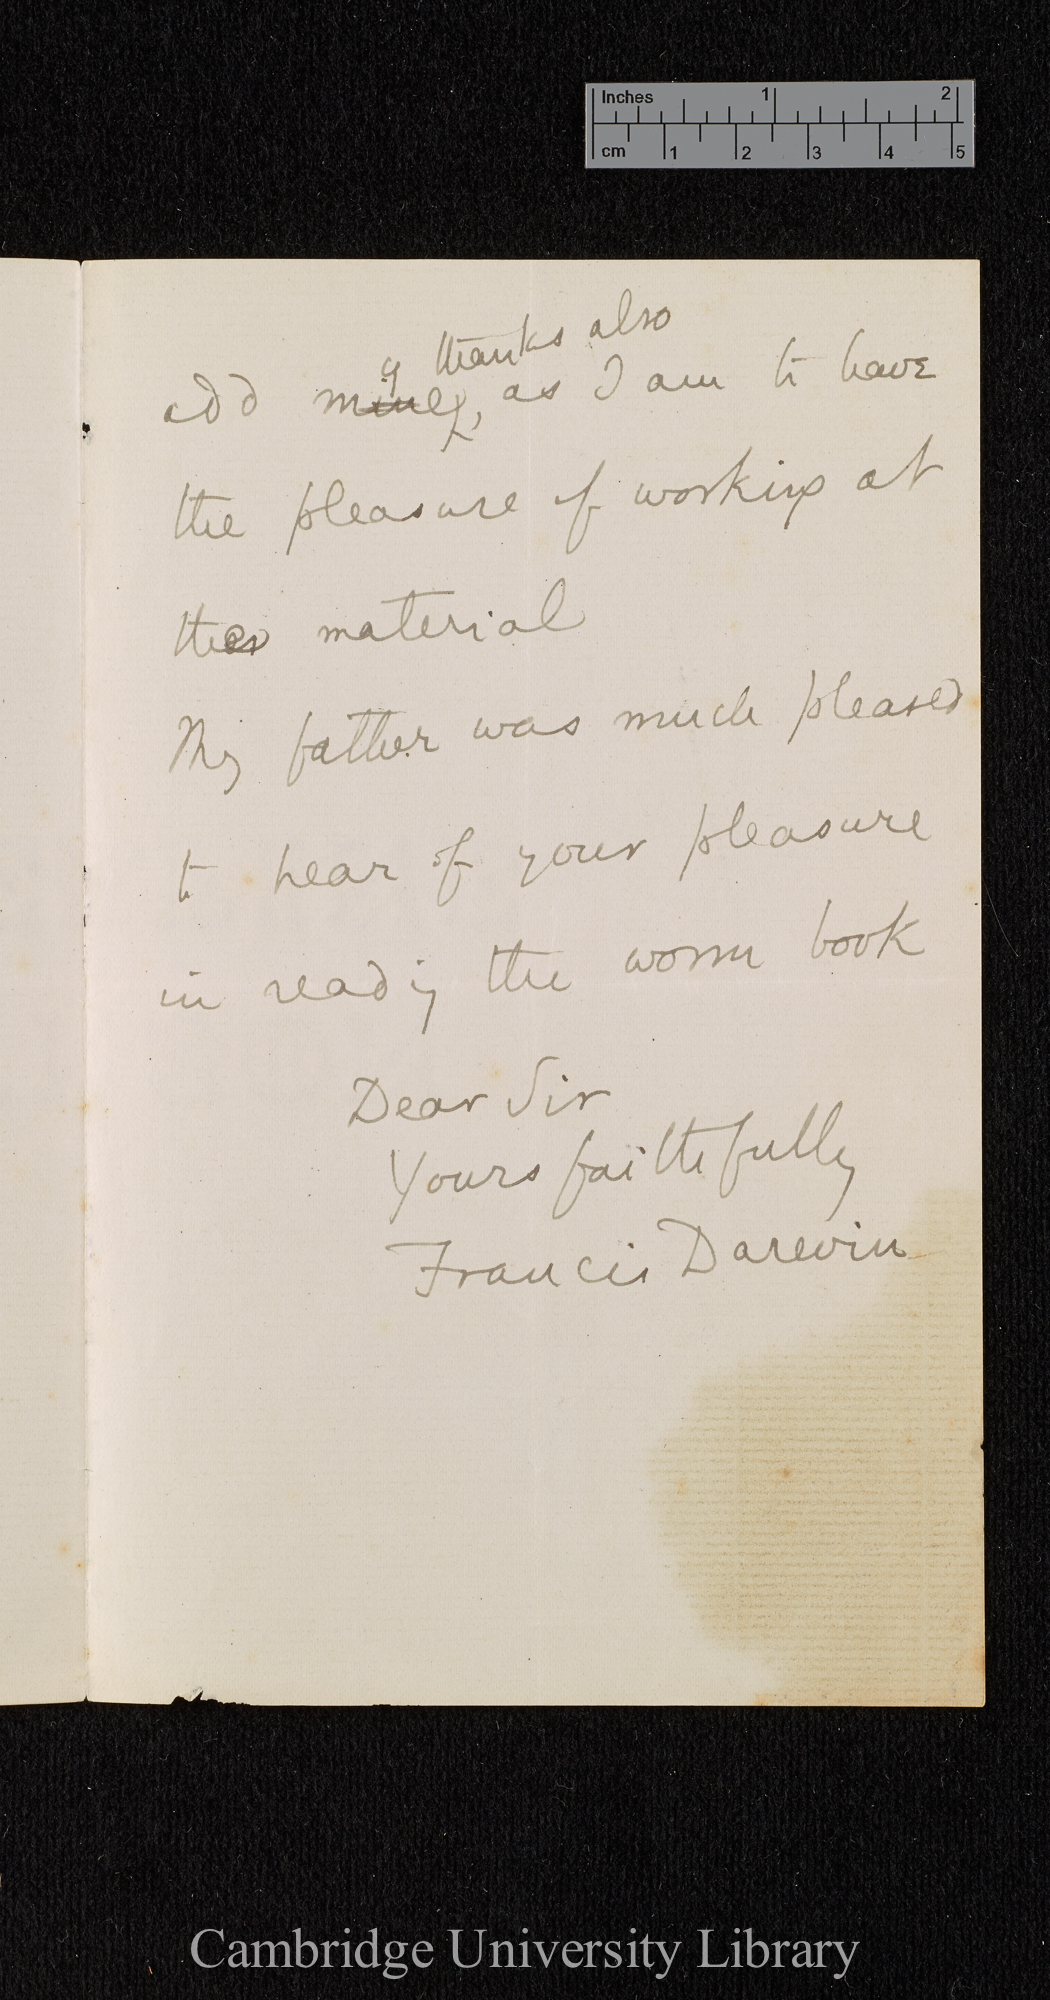 Inches 1 2
cm 1 2 3 4 5
y thanks also
add mine, as I am to have
the pleasure of working at
the material
My father was much pleased
to hear of your pleasure
in reading the worm book
Dear Sir
Yours faithfully
Francis Darwin
Cambridge University Library